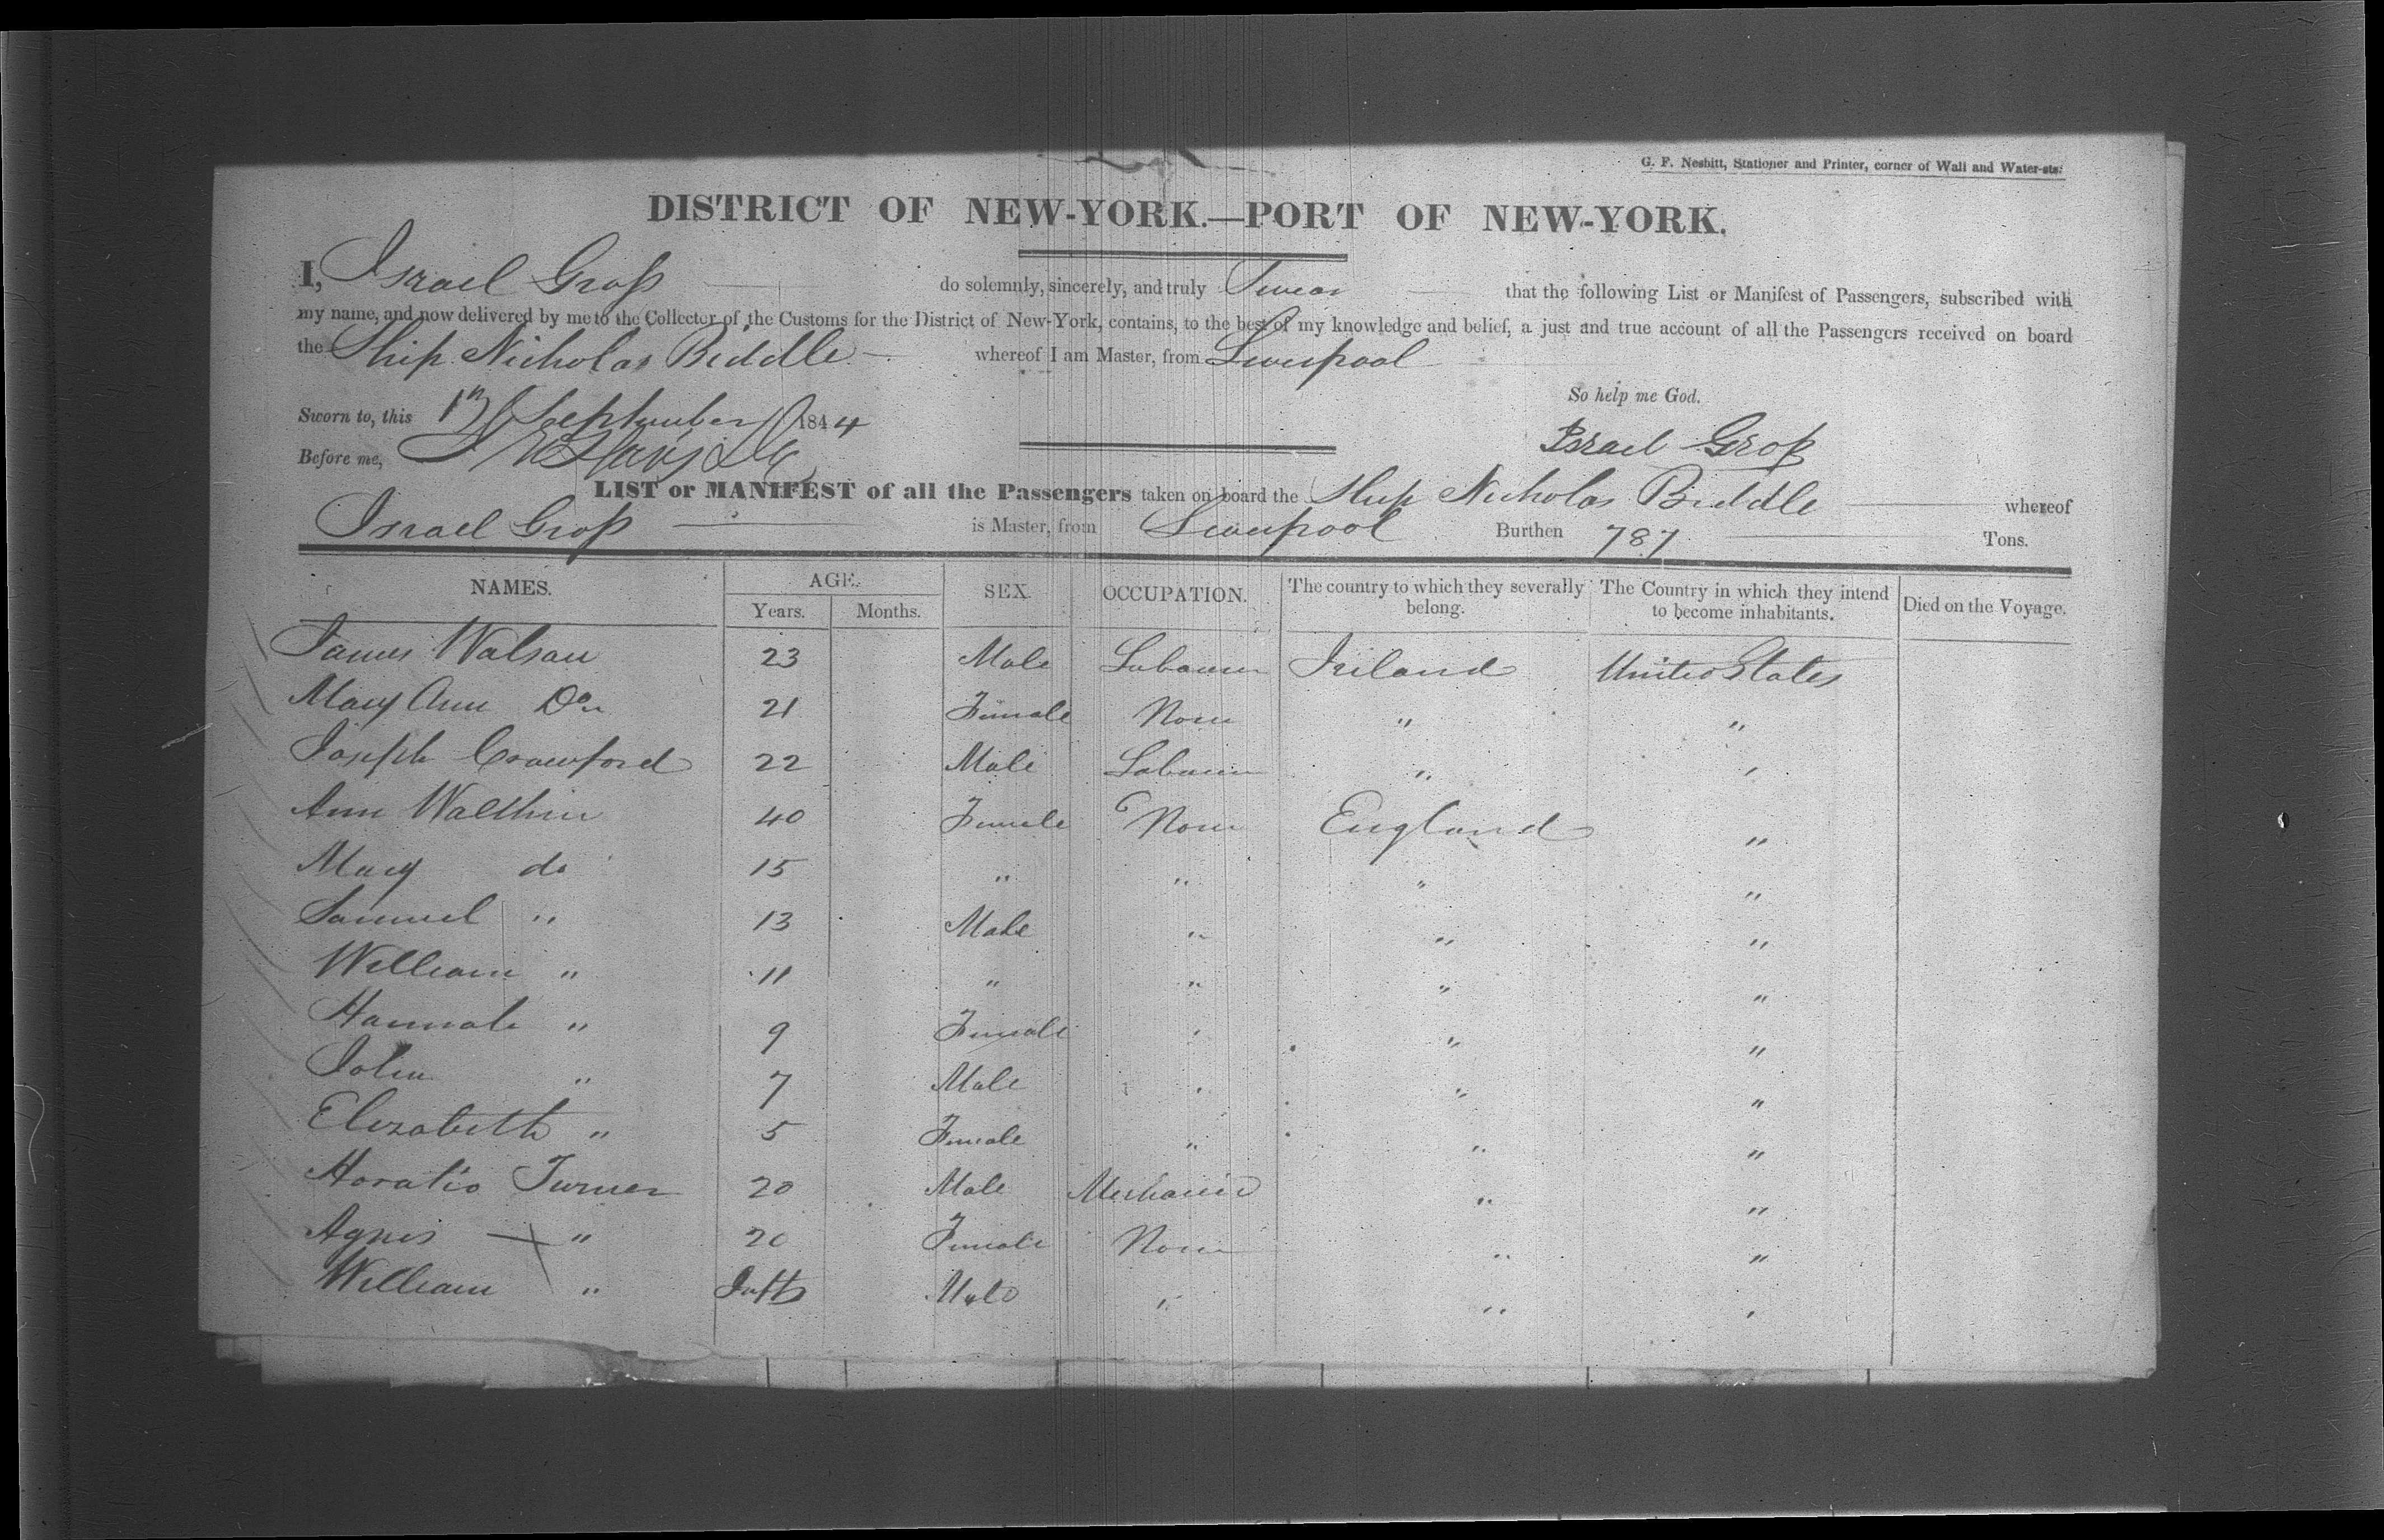 G. F. Nesbitt, Stationer and Printer, corner of Wall and Water-sts.
DISTRICT OF NEW-YORK.—PORT OF NEW-YORK.
I, Israel Groſs do solemnly, sincerely, and truly Swear that the following List or Manifest of Passengers, subscribed with
my name, and now delivered by me to the Collector of the Customs for the District of New-York, contains, to the best of my knowledge and belief, a just and true account of all the Passengers received on board
the Ship Nicholas Biddle whereof I am Master, from Liverpool
So help me God.
Sworn to, this September 1844
Israel Groſs
Before me,
LIST or MANIFEST of all the Passengers taken on board the Ship Nicholas Biddle whereof
Israel Groſs is Master, from Liverpool Burthen 787 Tons.
NAMES. AGE. Years. Months. SEX. OCCUPATION. The country to which they severally belong. The Country in which they intend to become inhabitants. Died on the Voyage.
James 23 Male Labourer Ireland United States
Mary Ann Do 21 Female None " "
Joseph Crawford 22 Male Labourer " "
Ann 40 Female None England "
Mary do 15 " " " "
Samuel " 13 Male " " "
William " 11 " " " "
Hannah " 9 Female " " "
John " 7 Male " " "
Elizabeth " 5 Female " " "
Horatio Turner 20 Male Mechanic " "
Agnes " 20 Female None " "
William " Inft Male " " "